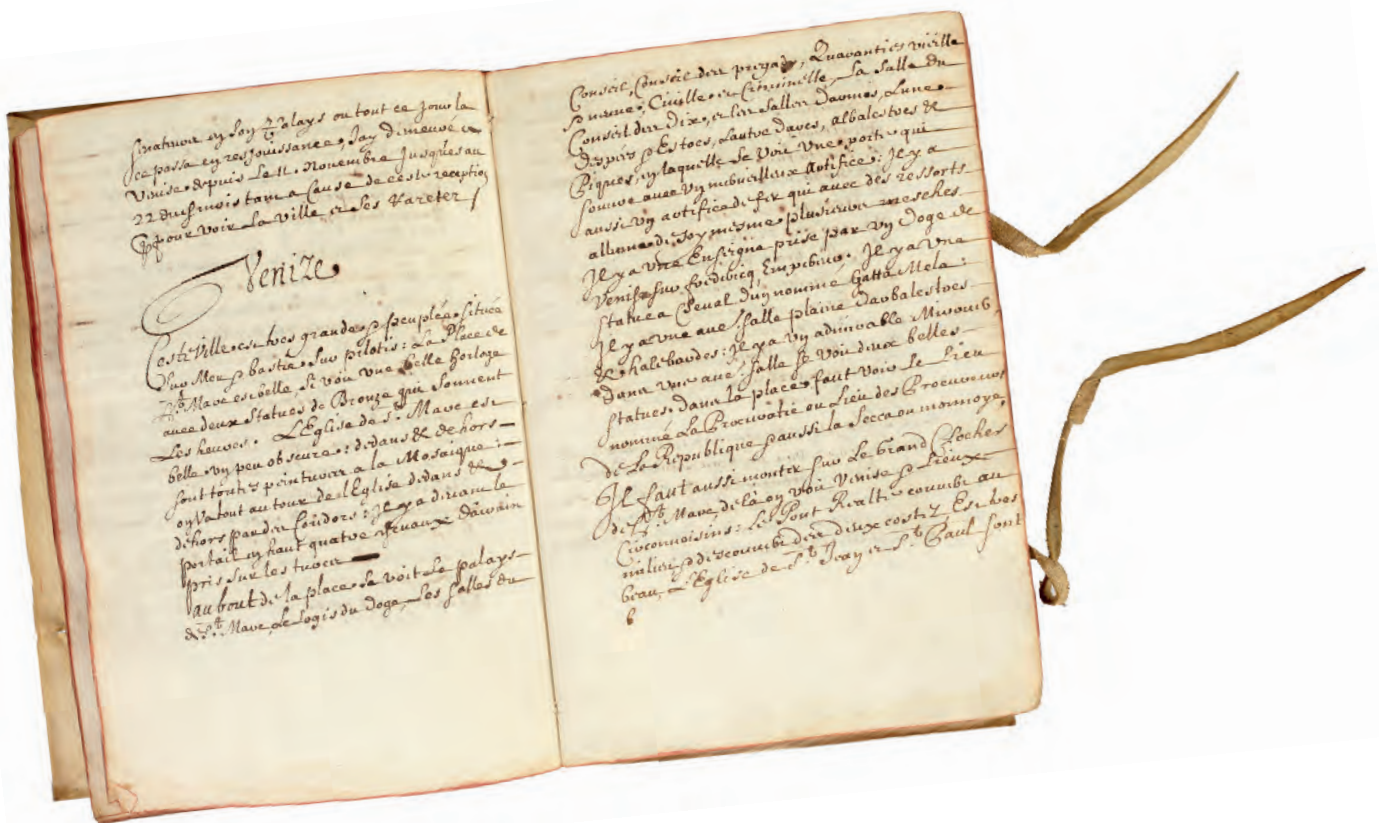 en son Palays ou tout ce jour la
ce passa en resjouissance, Jay demeuré a
Venise depuis le 11. Novembre jusques au
22 dud. mois tant a cause de ceste reception
pour voir la ville et ses raretez
Venize
Ceste Ville est tres grande & peuplée, située
sur Mer & bastie sur pilotis: La Place de
St. Marc est belle, se voit une belle horloge
avec deux statues de Bronze qui sonnent
les heures. L'Eglise de St. Marc est
belle un peu obscure: dedans & dehors
sont toutes peintures a la Mosaique:
on va tout autour de l'Eglise dedans &
dehors par des Coridors: Il y a devant le
portail en haut quatre chevaux d'airain
pris sur les turcs
au bout de la place se voit le palays
de St. Marc, le Logis du Doge, les salles du
Conseil, Conseil des pregadi, Quaranties vieille
& neuve, Civille et Criminelle, La salle du
Conseil des Dix, et les salles d'armes, l'une
Despées & Estocs, l'autre d'arcs, albalestres &
Piques, en laquelle se voit une porte qui
s'ouvre avec un merveilleux Artifice: Il y a
aussi un artifice de fer qui avec des ressorts
allume de soy mesme plusieurs mesches
Il y a une Enseigne prise par un Doge de
Venise sur Frederic Empereur. Il y a une
statue a Cheval d'un nommé Gatta Mela:
Il y a une aut. salle plaine d'arbalestres
& halebardes: Il y a un admirable Miroir
dans une aut. salle se voit deux belles
statues. dans la place faut voir le lieu
nommé La Procuratie ou lieu des Procureurs
de La Republique & aussi la Secca ou monnoye
Il faut aussi monter sur le grand Clocher
de St. Marc, de là on voit Venise & lieux
Circonvoisins: Le Pont Realte couvert au
milieu & descouvert des deux costez Est tres
beau, L'Eglise de St. Jean et St. Paul sont